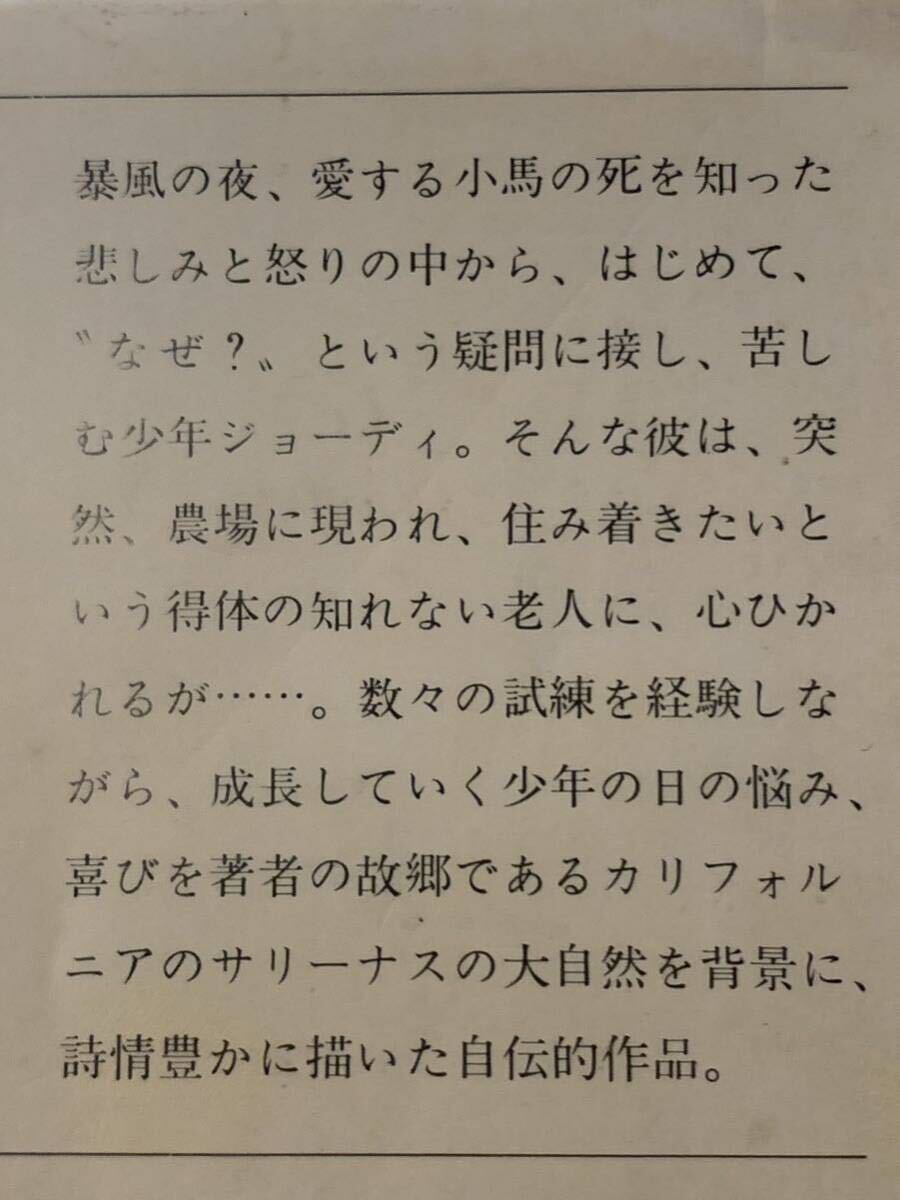 暴風の夜、愛する小馬の死を知った
悲しみと怒りの中から、はじめて、
〝なぜ？〟という疑問に接し、苦し
む少年ジョーディ。そんな彼は、突
然、農場に現われ、住み着きたいと
いう得体の知れない老人に、心ひか
れるが……。数々の試練を経験しな
がら、成長していく少年の日の悩み、
喜びを著者の故郷であるカリフォル
ニアのサリーナスの大自然を背景に、
詩情豊かに描いた自伝的作品。